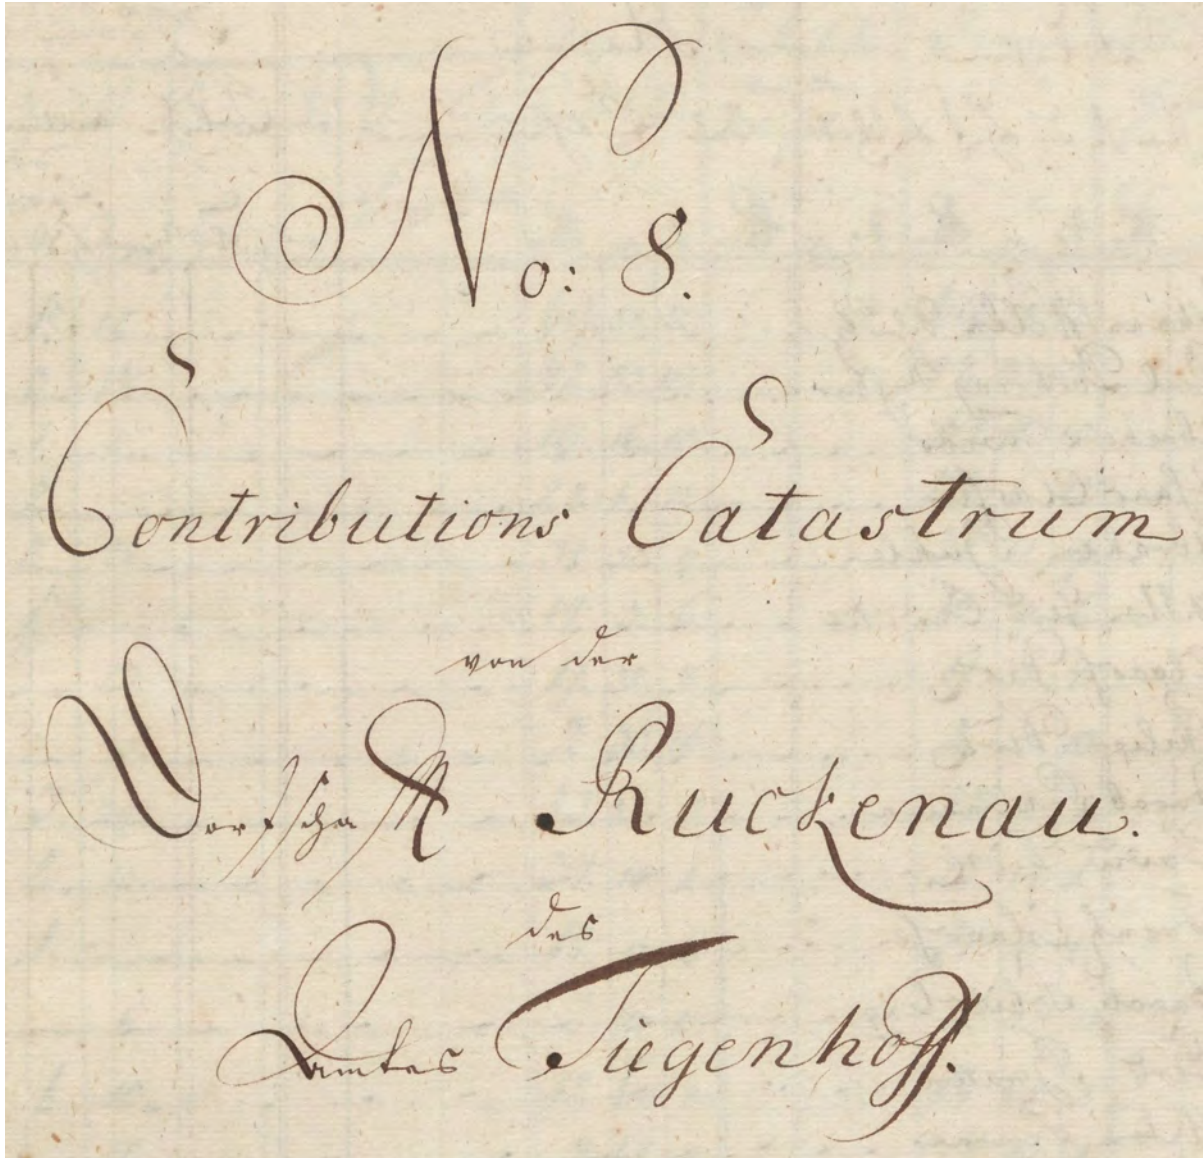 No: 8.
Contributions Catastrum
von der
Dorfschafft Ruckenau.
des
Amtes Tiegenhoff.